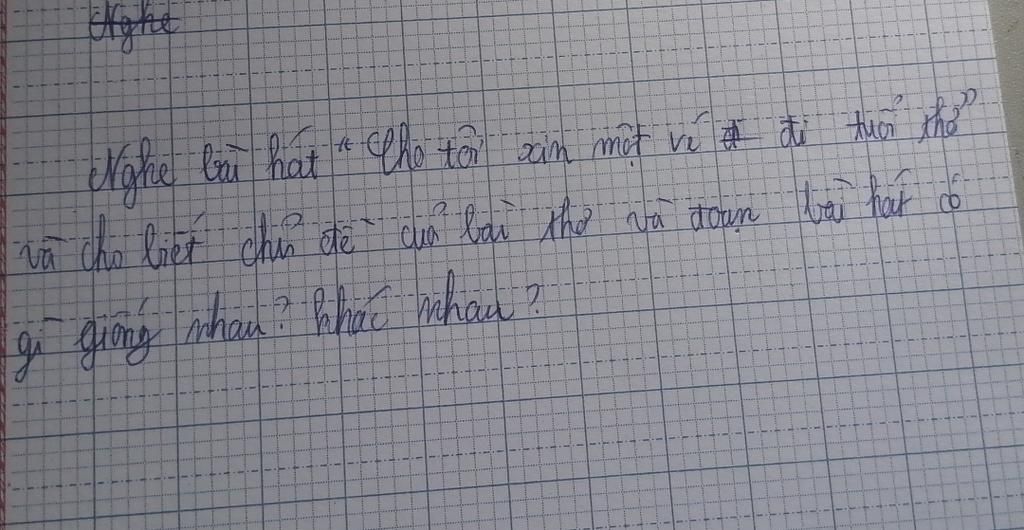 Nghe
Nghe bài hát "Cho tôi xin một vé đi tuổi thơ"
và cho biết chủ đề của bài thơ và đoạn bài hát có
gì giống nhau? khác nhau?